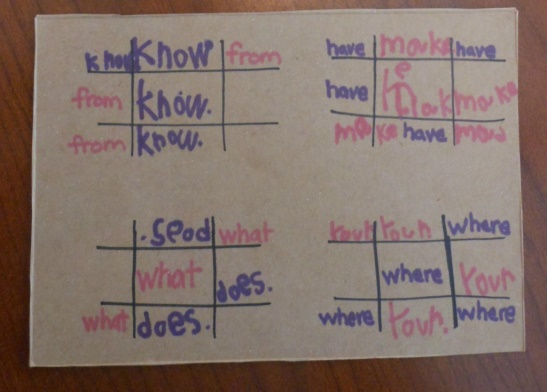 know know from
from know.
from know.
have make have
have make
make have
.seod what
what does.
what does.
your your where
where your
where your. where